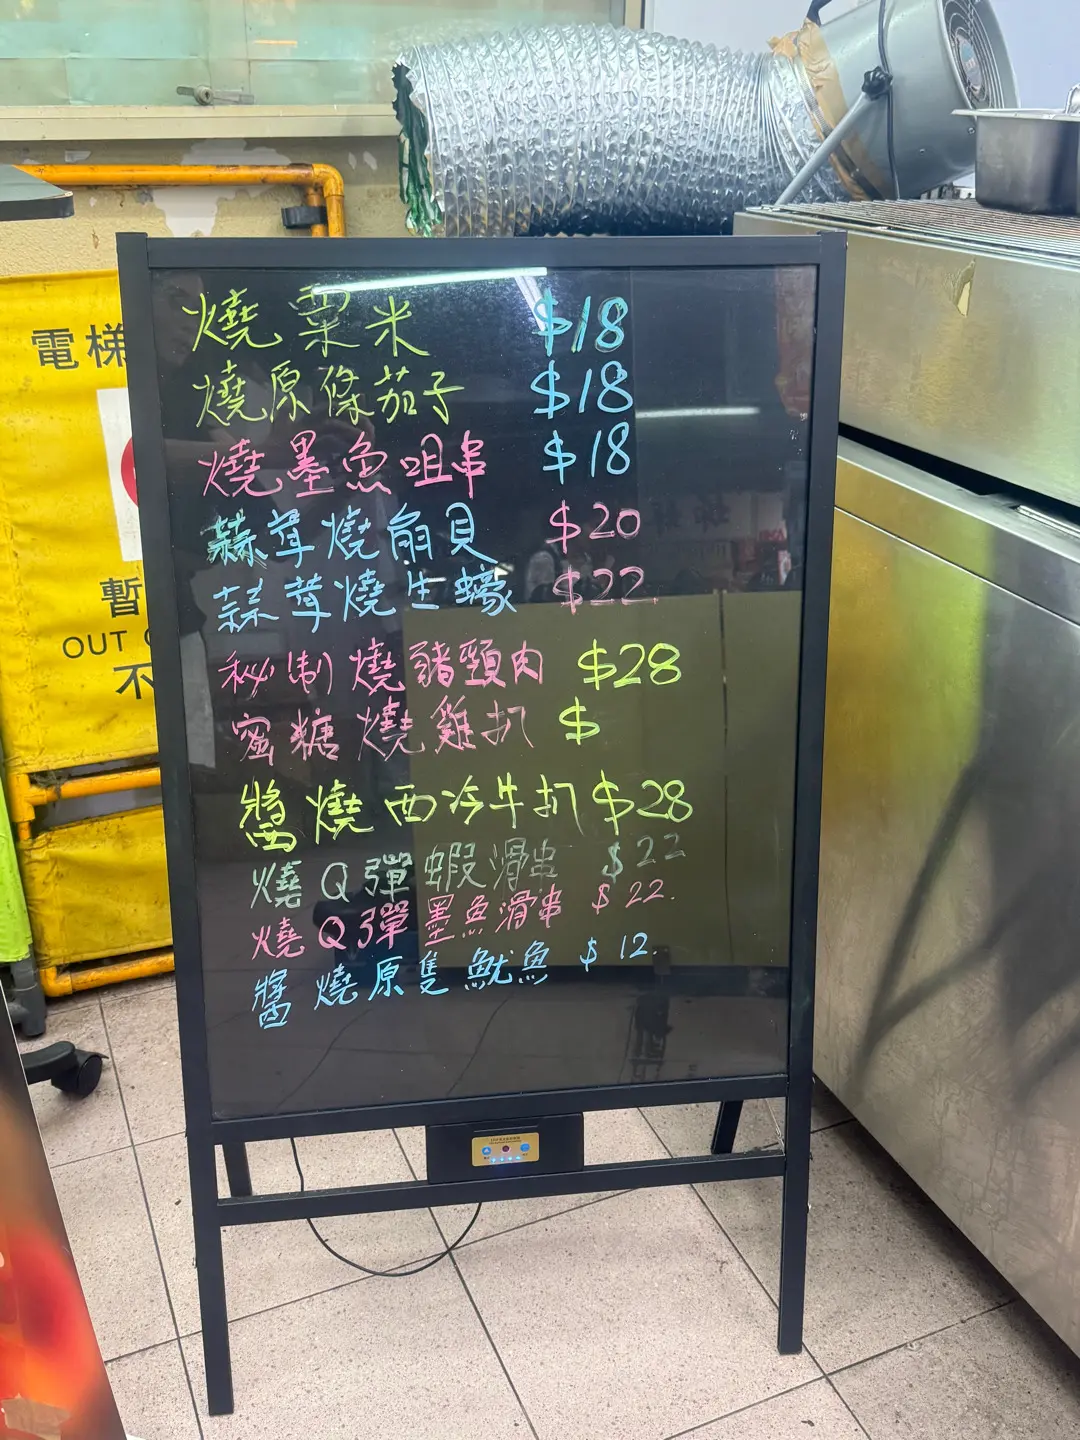 燒粟米 $18
燒原條茄子 $18
燒墨魚咀串 $18
蒜茸燒扇貝 $20
蒜茸燒生蠔 $22
秘制燒豬頸肉 $28
蜜糖燒雞扒 $
醬燒西冷牛扒 $28
燒Q彈蝦滑串 $22
燒Q彈墨魚滑串 $22.
醬燒原隻魷魚 $12.
電梯
暫
OUT
不